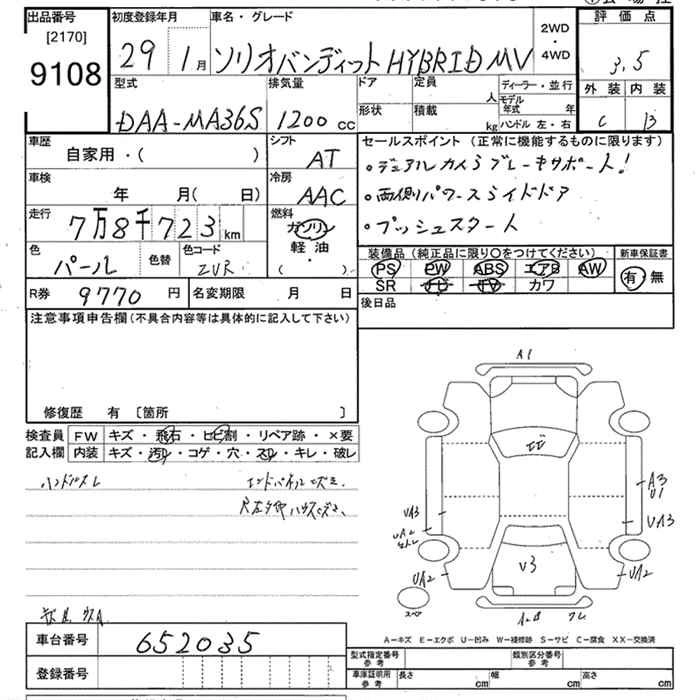 出品番号
[2170]
9108
初度登録年月
29 1月
車名・グレード
ソリオバンディット HYBRID MV
2WD
・
4WD
評価点
3.5
外装 内装
C B
型式
DAA-MA36S
排気量
1200 cc
ドア
形状
定員
人
積載
kg
ディーラー・並行
モデル年式 年
ハンドル 左・右
車歴
自家用・( )
シフト
AT
セールスポイント (正常に機能するものに限ります)
・デュアルカメラブレーキサポート!
・両側パワースライドドア
・プッシュスタート
車検
年 月( 日)
冷房
AAC
走行
7万8千723km
燃料
ガソリン
軽油
・
( )
色
パール
色替
色コード
ZVR
装備品 (純正品に限り〇をつけてください)
PS PW ABS エアB AW
SR TV カワ
新車保証書
有・無
R券 9770円
名変期限 月 日
後日品
注意事項申告欄(不具合内容等は具体的に記入して下さい)
修復歴 有 [箇所 ]
検査員記入欄
FW キズ・飛石・ヒビ割・リペア跡・×要
内装 キズ・汚れ・コゲ・穴・スレ・キレ・破レ
ハンドルスレ
エンドパネルキズ
A1
A3
U1
UA3
UA3
UA2
UA2
UA2
U3
スペア
A-キズ E-エクボ U-凹み W-補修跡 S-サビ C-腐食 XX-交換済
車台番号 652035
登録番号
型式指定番号
参考
類別区分番号
参考
車庫証明用
参考
長さ cm 幅 cm 高さ cm